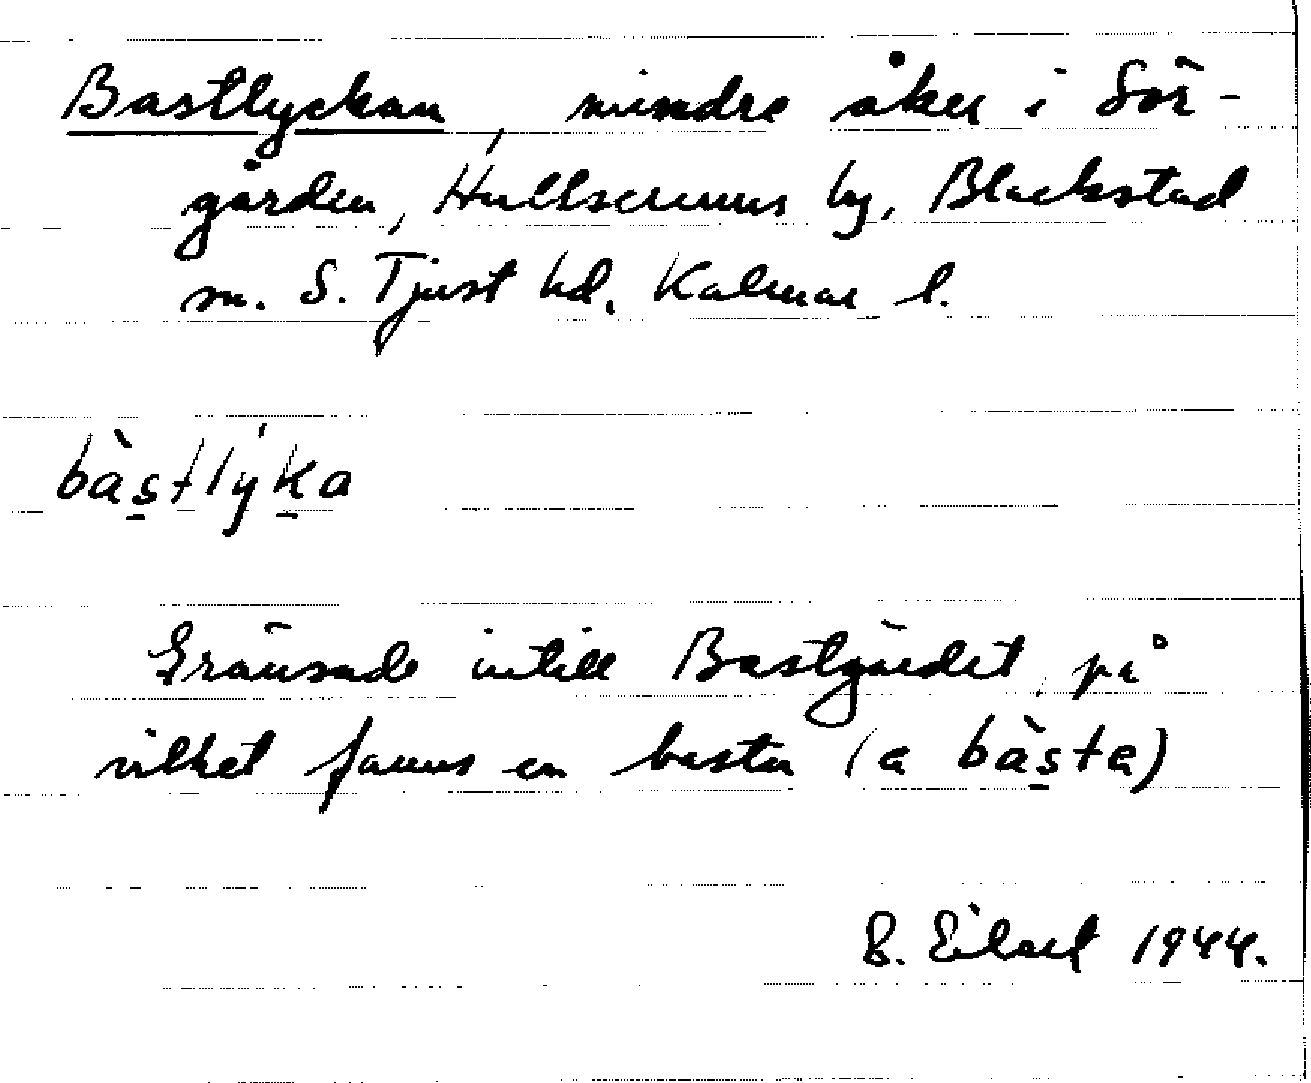 Bastlyckan, mindre åker i Sör-
gården, Hullserums by, Blackstad
sn. S. Tjust hd. Kalmar l.
bàstlýka
Gränsade intill Bastgärdet, på
vilket fanns en basta (a bàsta)
B. Eilard 1944.